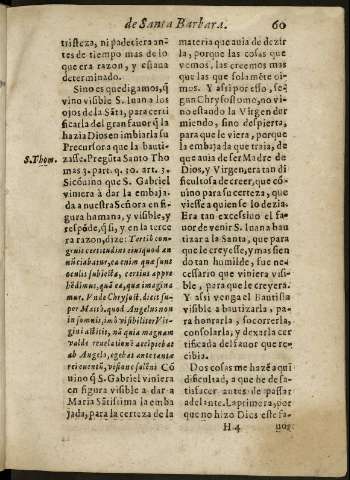 de Santa Barbara. 60
tristeza, ni padeciera an-
tes de tiempo mas de lo
que era razon, y estaua
determinado.
Sino es que digamos, q̃
vino visible S. Iuan a los
ojos de la Sãta, para certi
ficarla del gran fauor q̃ la
hazia Dios en imbiarla su
Precursor a que la bauti-
zasse. Pregũta Santo Tho
mas 3. part. q. 30. art. 3.
S. Thom.
Si cõuino que S. Gabriel
viniera à dar la embaja-
da a nuestra Señora en fi-
gura humana, y visible, y
respõde, q̃ si, y en la terce
ra razon, dize: Tertiò con-
gruit certitudini eiusquod an
nũciabatur, ea enim quæ sunt
oculis subiecta, certius appre
hẽdimus, quã ea, quæ imagina
mur. Vnde Chrysost. dicit su-
per Matth. quod Angelus non
in somnis, imò visibiliter Vir-
gini astitit, nã quia magnam
valde reuelationẽ accipiebat
ab Angelo, egebat ante tantæ
rei euentũ, visione solẽni Cõ
uino q̃ S. Gabriel viniera
en figura visible a dar a
Maria Sãtissima la emba
jada, para la certeza de la
materia que auia de dezir
la, porque las cosas que
vemos, las creemos mas
que las que solamẽte oi-
mos. Y assi por esso, se-
gun Chrysostomo, no vi-
no estando la Virgen dur
miendo, sino despierta,
para que le viera, porque
la embajada que traia, de
que auia de ser Madre de
Dios, y Virgen, era tan di
ficultosa de creer, que cõ-
uino para su certeza, que
viesse a quien se lo dezia.
Era tan excessiuo el fa-
uor de venir S. Iuan a bau
tizar a la Santa, que para
que le creyesse, y mas sien
do tan humilde, fue ne-
cessario que viniera visi-
ble, para que le creyera.
Y assi venga el Bautista
visible a bautizarla, pa-
ra honrarla, socorrerla,
consolarla, y dexarla cer
tificada del fauor que re-
cibia.
Dos cosas me hazẽ aqui
dificultad, a que he de sa-
tisfacer antes de passar
adelante. La primera, por
que no hizo Dios este fa-
H 4 uor